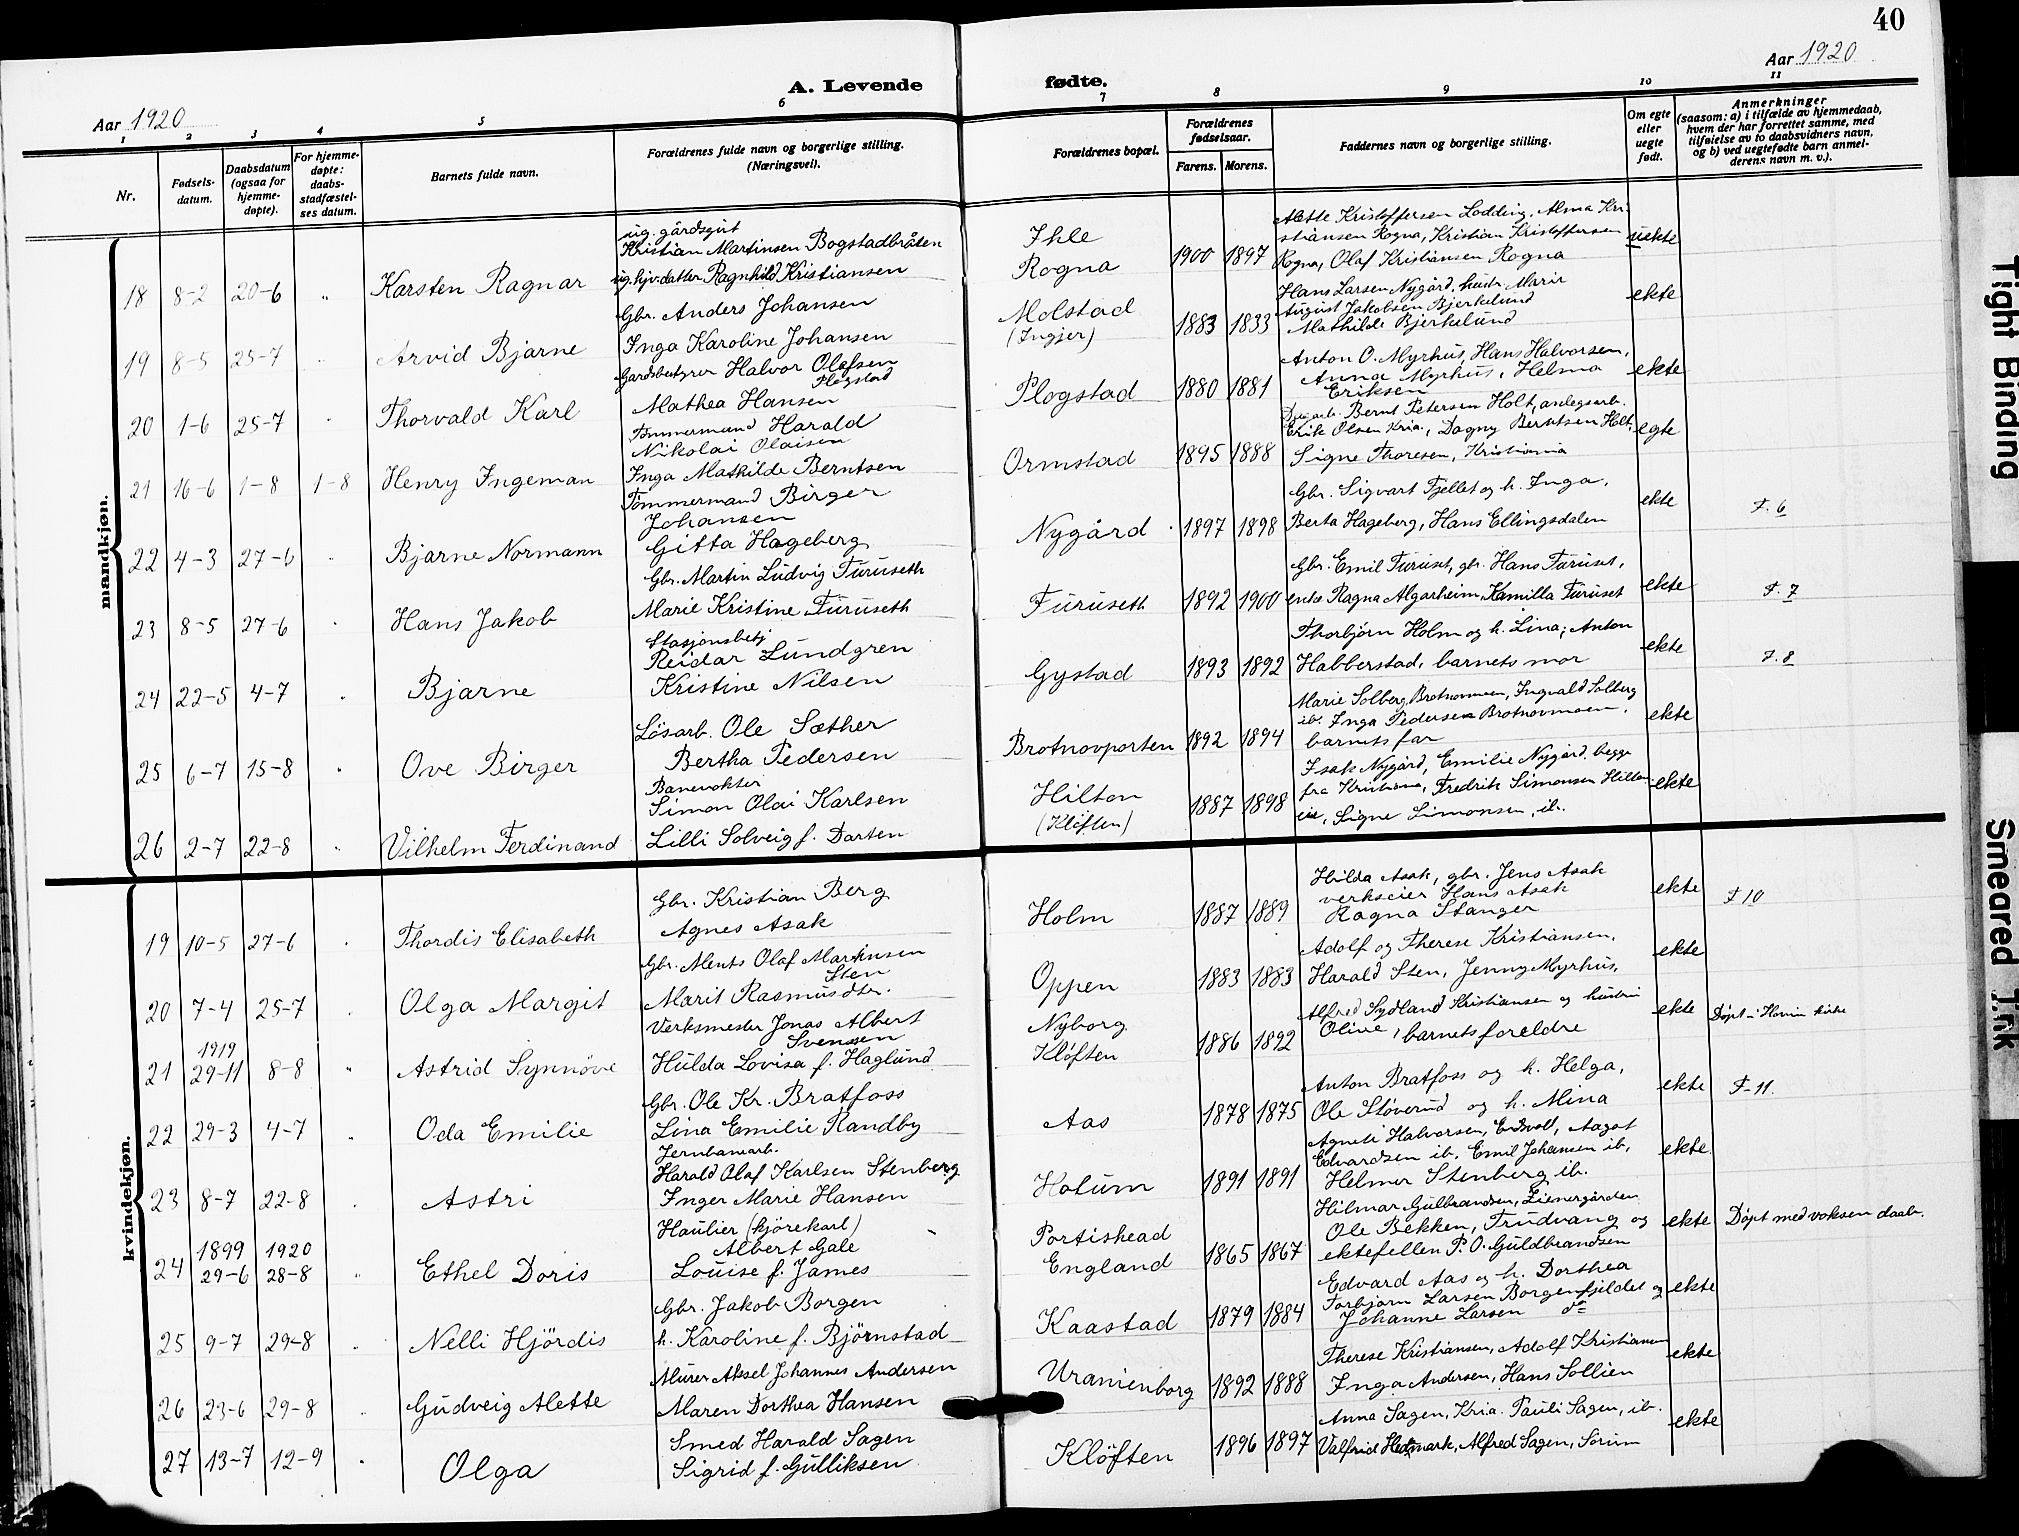 40
Aar 1920
Aar 1920
A. Levende fødte.
1 2 3 4 5 6 7 8 9 10 11
Nr.
Fødsels-
datum.
Daabsdatum
(ogsaa for
hjemme-
døpte).
For hjemme-
døpte:
daabs-
stadfæstel-
ses datum.
Barnets fulde navn.
Forældrenes fulde navn og borgerlige stilling.
(Næringsvei).
Forældrenes bopæl.
Forældrenes
fødselsaar.
Farens. Morens.
Faddernes navn og borgerlige stilling.
Om egte
eller
uegte
født.
Anmerkninger
(saasom: a) i tilfælde av hjemmedaab,
hvem der har forrettet samme, med
tilføielse av to daabsvidners navn,
og b) ved uegtefødte barn anmel-
derens navn m. v.).
mandkjøn.
18 8-2 20-6 " Karsten Ragnar
ug. gårdsgut
Kristian Martinsen Bogstadbråten
ug. hjv. datter Ragnhild Kristiansen
Ihle
Rogna
1900 1897
Alette Kristoffersen Lodding, Alma Kri-
stiansen Rogna, Kristian Kristoffersen
Rogna, Olaf Kristiansen Rogna
uekte
19 8-5 25-7 " Arvid Bjarne
Gbr. Anders Johansen
Inga Karoline Johansen
Molstad
(Ingjer)
1883 1833
Hans Larsen Nygård, hustr. Marie
August Jakobsen Bjerkelund
Mathilde Bjerkelund
ekte
20 1-6 25-7 " Thorvald Karl
Gardsbestyrer Halvor Olafsen
Plogstad
Mathea Hansen
Plogstad
1880 1881
Anton O. Myrhus, Hans Halvorsen,
Anna Myrhus, Helma
Eriksen
ekte
21 16-6 1-8 1-8 Henry Ingeman
Tømmermand Harald
Nikolai Olaisen
Inga Mathilde Berntsen
Ormstad
1895 1888
Bernt Petersen Holt, anlegsarb.
Erik Olsen Kria., Dagny Berntsen Holt,
Signe Thoresen, Kristiania
egte
22 4-3 27-6 " Bjarne Normann
Tømmermand Birger
Johansen
Gitta Hageberg
Nygård
1897 1898
Gbr. Sigvart Fjellet og h. Inga,
Berta Hageberg, Hans Ellingsdalen
ekte
F. 6
23 8-5 27-6 " Hans Jakob
Gbr. Martin Ludvig Furuseth
Marie Kristine Furuseth
Furuseth
1892 1900
Gbr. Emil Furuset, gbr. Hans Furuset,
enke Ragna Algarheim, Kamilla Furuset
ekte
F. 7
24 22-5 4-7 " Bjarne
Stasjonsbetj
Reidar Lundgren
Kristine Nilsen
Gystad
1893 1892
Thorbjørn Holm og h. Lina; Anton
Habberstad, barnets mor
ekte
F. 8
25 6-7 15-8 " Ove Birger
Løsarb. Ole Sæther
Bertha Pedersen
Brotnovporten
1892 1894
Marie Solberg Brotnovmoen, Ingvald Solberg
ib. Inga Pedersen Brotnovmoen,
barnets far
ekte
26 2-7 22-8 " Vilhelm Ferdinand
Banevokter
Simon Olai Karlsen
Lilli Solveig f. Darten
Hilton
(Kløften)
1887 1898
Isak Nygård, Emilie Nygård, begge
fra Kristiania, Fredrik Simonsen Hilton
Signe Simonsen, ib.
ekte
kvindekjøn.
19 10-5 27-6 " Thordis Elisabeth
Gbr. Kristian Berg
Agnes Asak
Holm
1887 1889
Hilda Asak, gbr. Jens Asak
verkseier Hans Asak
Ragna Stanger
ekte
F 10
20 7-4 25-7 " Olga Margit
Gbr. Ments Olaf Martinsen
Sten
Marit Rasmusdtr.
Oppen
1883 1883
Adolf og Therese Kristiansen,
Harald Sten, Jenny Myrhus,
ekte
1919
21 29-11 8-8 " Astrid Synnøve
Verksmester Jonas Albert
Svenssen
Hulda Lovisa f. Haglund
Nyborg
Kløften
1886 1892
Alfred Sydland Kristiansen og hustru
Olive, barnets foreldre
ekte
Døpt i Hovin kirke
22 29-3 4-7 " Oda Emilie
Gbr. Ole Kr. Bratfoss
Lina Emilie Randby
Aas
1878 1875
Anton Bratfoss og h. Helga,
Ole Støverud og h. Mina
ekte
F-11.
23 8-7 22-8 " Astri
Jernbanearb.
Harald Olaf Karlsen Stenberg
Inger Marie Hansen
Holum
1891 1891
Agneti Halvorsen, Eidsvold, Aagot
Edvardsen ib, Emil Johansen ib,
Helmer Stenberg ib.
ekte.
1899 1920
24 29-6 28-8 " Ethel Doris
Haulier (kjörekarl)
Albert Gale
Louise f. James
Portishead
England
1865 1867
Hilmar Gulbrandsen, Lienergården
Ole Bekken, Trudvang og
ektefellen P. O. Guldbrandsen
ekte
Døpt med voksen daab.
25 9-7 29-8 " Nelli Hjördis
Gbr. Jakob Borgen
h. Karoline f. Bjørnstad
Kaastad
1879 1884
Edvard Aas og h. Dorthea
Torbjørn Larsen Borgenfjeldet og
Johanne Larsen do
ekte
26 23-6 29-8 " Gudveig Alette
Murer Aksel Johannes Andersen
Maren Dorthea Hansen
Uranienborg
1892 1888
Therese Kristiansen, Adolf Kristiansen
Inga Andersen, Hans Sollien
ekte
27 13-7 12-9 " Olga
Smed Harald Sagen
Sigrid f. Gulliksen
Kløften
1896 1897
Anna Sagen, Kria. Pauli Sagen, ib.
Valfrid Hedmark, Alfred Sagen, Sørum
ekte
Tight Binding
Smeared Ink